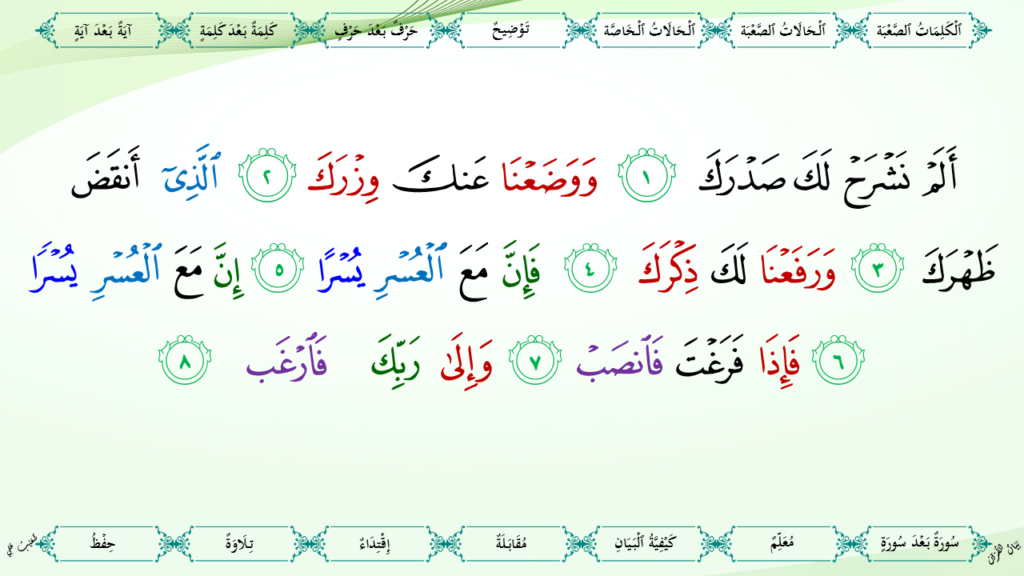 ٱلْكَلِمَاتُ ٱلصَّعْبَة ٱلْحَالَاتُ ٱلصَّعْبَة ٱلْحَالَاتُ ٱلْخَاصَّة تَوْضِيحٌ حَرْفٌ بَعْدَ حَرْفٍ كَلِمَةٌ بَعْدَ كَلِمَةٍ آيَةٌ بَعْدَ آيَةٍ
أَلَمْ نَشْرَحْ لَكَ صَدْرَكَ ١ وَوَضَعْنَا عَنكَ وِزْرَكَ ٢ ٱلَّذِىٓ أَنقَضَ
ظَهْرَكَ ٣ وَرَفَعْنَا لَكَ ذِكْرَكَ ٤ فَإِنَّ مَعَ ٱلْعُسْرِ يُسْرًا ٥ إِنَّ مَعَ ٱلْعُسْرِ يُسْرًا
٦ فَإِذَا فَرَغْتَ فَٱنصَبْ ٧ وَإِلَىٰ رَبِّكَ فَٱرْغَب ٨
سُورَةٌ بَعْدَ سُورَةٍ مُعَلِّمٌ كَيْفِيَّةُ ٱلْبَيَانِ مُقَابَلَةٌ إِقْتِدَاءٌ تِلَاوَةٌ حِفْظٌ